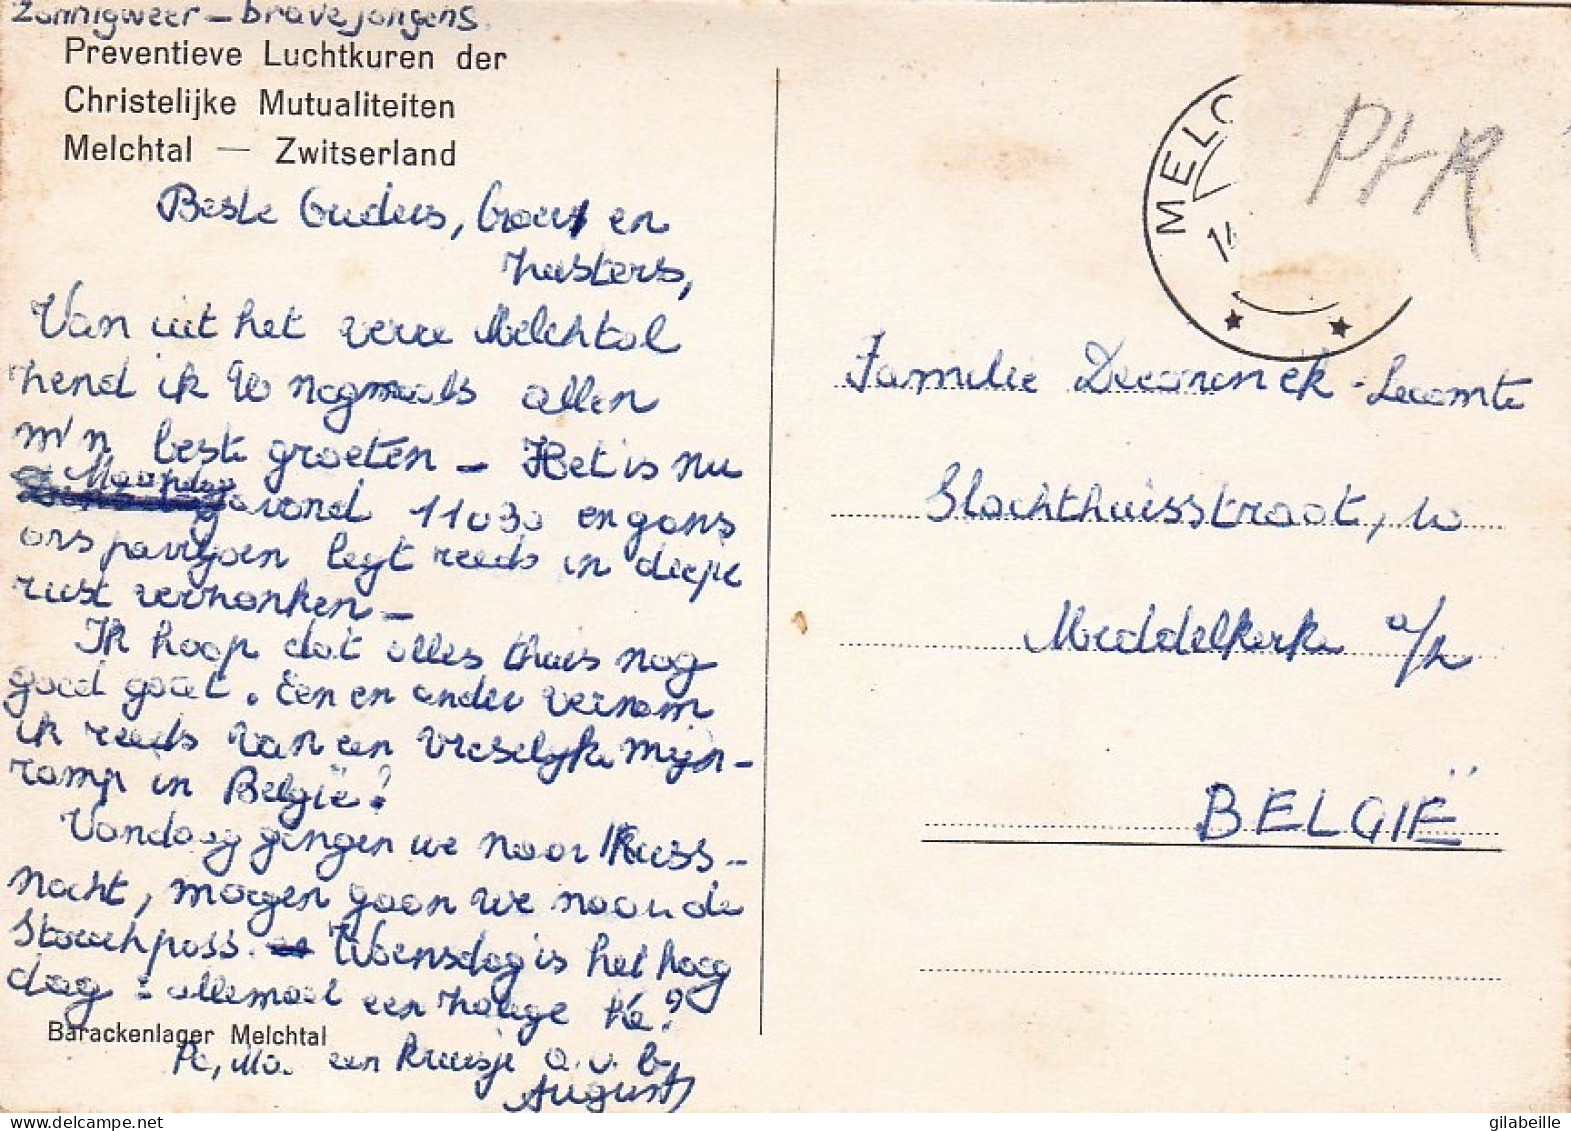 Zonnig weer - brave jongens.
Preventieve Luchtkuren der
Christelijke Mutualiteiten
Melchtal — Zwitserland
Beste Ouders, broers en
zusters,
Van uit het verre Melchtal
zend ik U nogmaals allen
m'n beste groeten - Het is nu
Maandag avond 11u30 en gans
ons paviljoen ligt reeds in diepe
rust verzonken -
Ik hoop dat alles thuis nog
goed gaat. Een en ander vernam
ik reeds van een vreselijke mijn-
ramp in België!
Vandaag gingen we naar Kuss-
nacht, morgen gaan we naar de
Storeghpass. Woensdag is het hoog
dag : allemaal een hoge hé?
Barackenlager Melchtal
Pa, Ma. een kruisje a.u.b.
August
MELC
14
Pt R
Familie Deconinck-Lecomte
Slachthuisstraat, 10
Middelkerke a/z
BELGIË
gilabeille